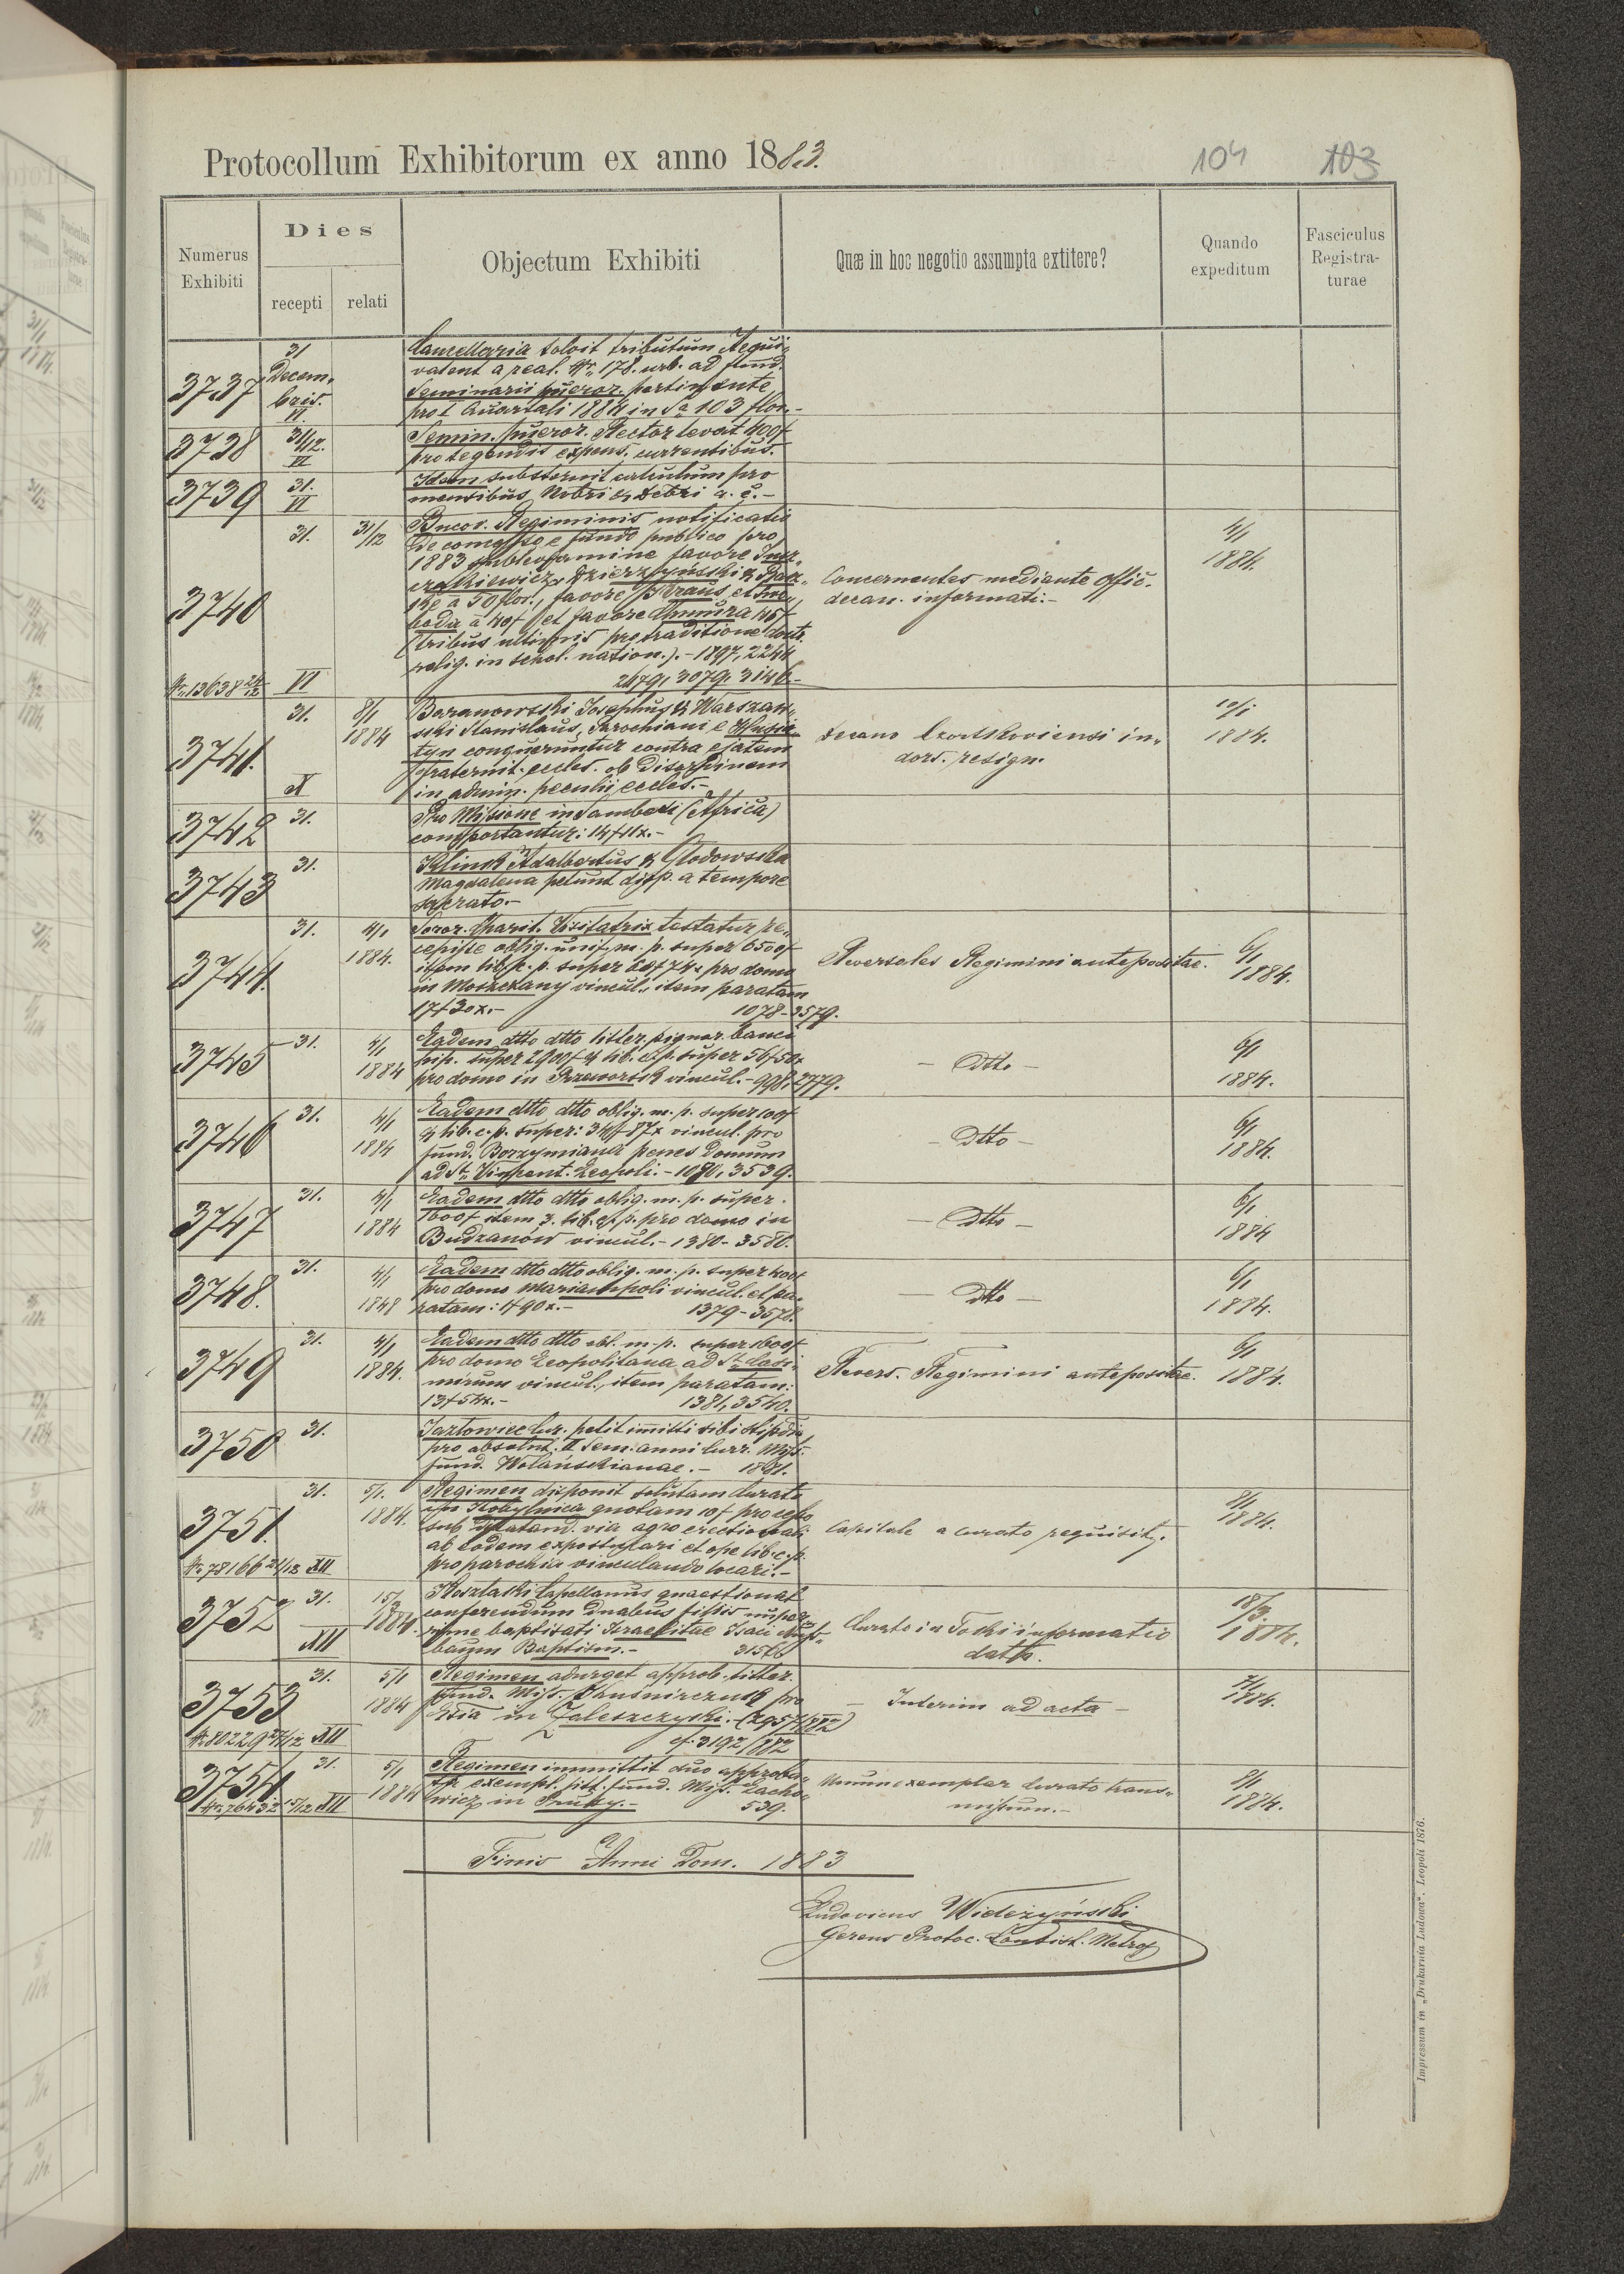 Protocollum Exhibitorum ex anno 1883.
104 103
Numerus Exhibiti
Dies
recepti
relati
Objectum Exhibiti
Quæ in hoc negotio assumpta extitere?
Quando expeditum
Fasciculus Registra-
turae
3737
31
Decem„
bris.
VI
Cancellaria solvit tributum Aequi„
valent a real. Nr„ 178. urb. ad fund.
Seminarii pueror. pertinente
pro I Quartali 1884 in Sa 103 flor.-
3738
31/12.
VI
Semin. pueror. Rector levat 400f
pro tegendis expens. currentibus.
3739
31.
VI
Idem substernit calculum pro
mensibus Nobri & Debri a. c.-
3740
Nr„ 13638 24/12
31.
VI
31/12
Bucov. Regiminis notificatio
de concesso e fundo publico pro
1883 sublevamine favore
Dzierzyński &
à 50 flor., favore Kraus et
à 40f et favore 45f
(tribus ultimis pro traditione doctr.
relig. in schol. nation.).- 1897, 2244
2679, 3079, 3146.-
Concernentes mediante offic.
decan. informati.-
4/1
1884.
3741.
31.
X
8/1
1884
Baranowski Josephus & Warszaw„
ski Stanislaus, Parochiani e Husia„
tyn conqueruntur contra ejatem
fraternit. eccles. ob disordinem
in admin. peculii eccles.-
Decano Czortkoviensi in„
dors. resign.
10/1
1884.
3742
31.
Pro Missione in Sambesi (Africa)
comportantur: 14f11x.-
3743
31.
Klimek Adalbertus & Głodowska
Magdalena petunt disp. a tempore
sacrato.-
3744.
31.
4/1
1884.
Soror. Charit. Visitatrix testatur re„
cepisse oblig. unif. m. p. super 6500f
item lib. c. p. super 28f74x pro domo
in Moszczany vincul., item paratam
17f30x.- 1078-3579.
Reversales Regimini antepositae.
6/1
1884.
3745
31.
4/1
1884
Eadem dtto dtto litter. pignor. banci
hip. super 2900f & lib. c. p. super 56f50x
pro domo in Przeworsk vincul.- 998, 2779.
- Dtto -
6/1
1884.
3746
31.
4/1
1884
Eadem dtto dtto oblig. m. p. super 100f
& lib. c. p. super: 34f87x vincul. pro
fund. Borzymiana penes Domum
ad St„ Vincent. Leopoli.- 1080, 3539.
- Dtto -
6/1
1884.
3747
31.
4/1
1884
Eadem dtto dtto oblig. m. p. super
1600f item lib. c. p. pro domo in
Budzanów vincul.- 1380-3580.
- Dtto -
6/1
1884
3748.
31.
4/1
1848
Eadem dtto dtto oblig. m. p. super 400f
pro domo Mariampoli vincul. et pa„
ratam: 1f90x.- 1379-3578.
- Dtto -
6/1
1884.
3749
31.
4/1
1884.
Eadem dtto dtto obl. m. p. super 1600f
pro domo Leopolitana ad St. Casi„
mirum vincul., item paratam:
13f54x.- 1381, 3540.
Revers. Regimini antepositae.
6/1
1884.
3750
31.
Jazłowiec Cur. petit immitti sibi stipdia
pro absolut. II Sem. anni curr. Miss.
fund. Wolańskianae.- 1891.
3751.
Nr„ 78166 21/12
31.
XII
5/1.
1884.
Regimen disponit solutam Curato
Kobylnica quotam 10f pro
sub via agro erectionali
ab eodem expostulari et ope lib. c. p.
pro parochia vinculando locari.-
Capitale a Curato requisit.
8/1
1884.
3752
31.
XII
15/3
1884.
Capellanus quaestionat
conferendum duabus filiis nuper„
rime baptisati Israelitae Isaci Nuss„
baum Baptism.- 3156
Curato in Toki informatio
data.
18/3.
1884.
3753
Nr„ 80229 27/12
31.
XII
5/1
1884
Regimen adurget approb. litter.
fund. Miss. Kuśnirczuk pro
Ecclia in Zaleszczyki.- (2957/882)
cf. 3192/882
- Interim ad acta -
7/1
1884.
3754.
Nr„ 76432 15/12
31.
XII
5/1
1884
Regimen immittit duo approba„
ta exempl. litt. fund. Miss. Lacho„
wicz in Pruky.- 539.
Unum exemplar Curato trans„
missum.-
8/1
1884.
Finis Anni Dom. 1883
Ludovicus Wieleżyński
Gerens Protoc. Consist. Metrop
Impressum in „Drukarnia Ludowa". Leopoli 1876.